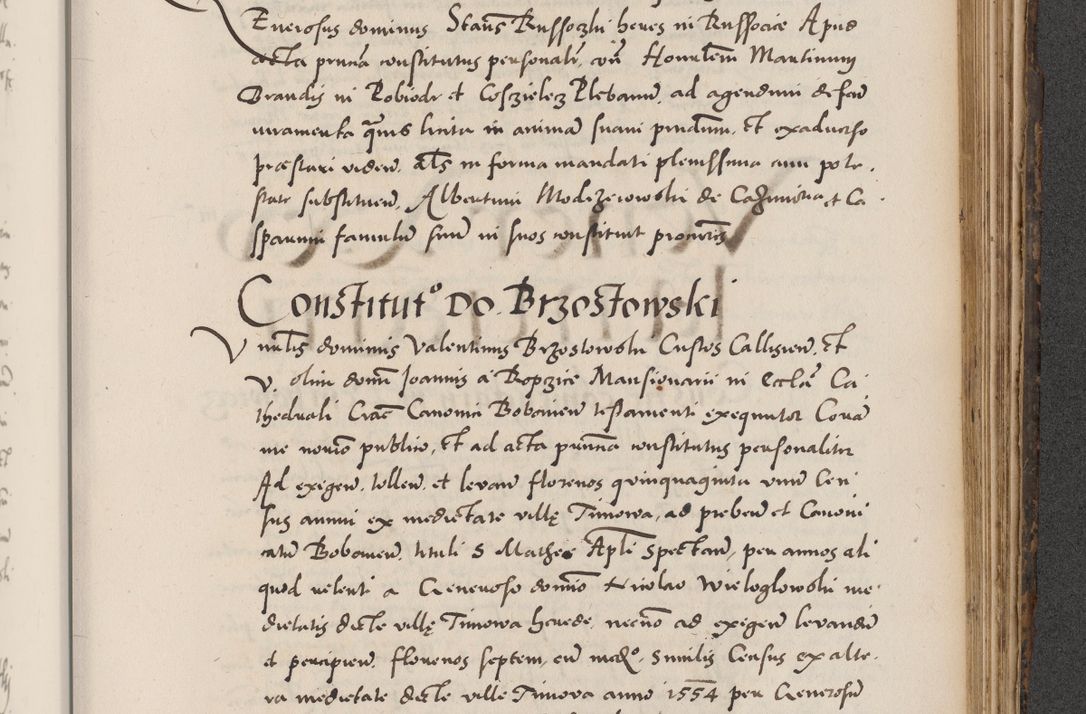 Generosus dominus Stans Russoczki heres in Russocice Apud
acta prnta constitutus personalr. con Honorlem Martinum
Brandis in Robiodr et Cosczielecz Plebanu, ad agendum defen
iuramenta quis licita in animã suam prndum. Et exaduerso
præstari viden. als in forma mandati plenissima cum pote.
state substituen. Albertum Modzerowoski de Cazimiria et Ca
sparum famulũ suum in suos constituit procures
Constitut.º Do. Brzostowski
Vnrlis dominus Valentinus Brzostowski Custos Callisien. Et
V. olim domi Joannis a Ropczice Mansionarii in Eccla Ca
thedrali Crac Canonici Bobouien testamenti exequutor Corã
me norio publico, Et ad acta prnta constitutus personaliter
Ad exigen. tollen. et levan florenos quinquaginta vnum Cen
sus annui ex medietate villę Timowa, ad preben et Canoni
catũ Bobouien. tituli S Mathei Apli spectan, per annos ali
quod retenti a Generoso domio Nicolao Wieloglowski me
dietatis dicte villę Timowa herede. necno ad exigen levandũ
et percipien. florenos septem, cu mar.º similis Census ex alte.
ra medietate dicte ville Timova anno 1554 per Generosũ